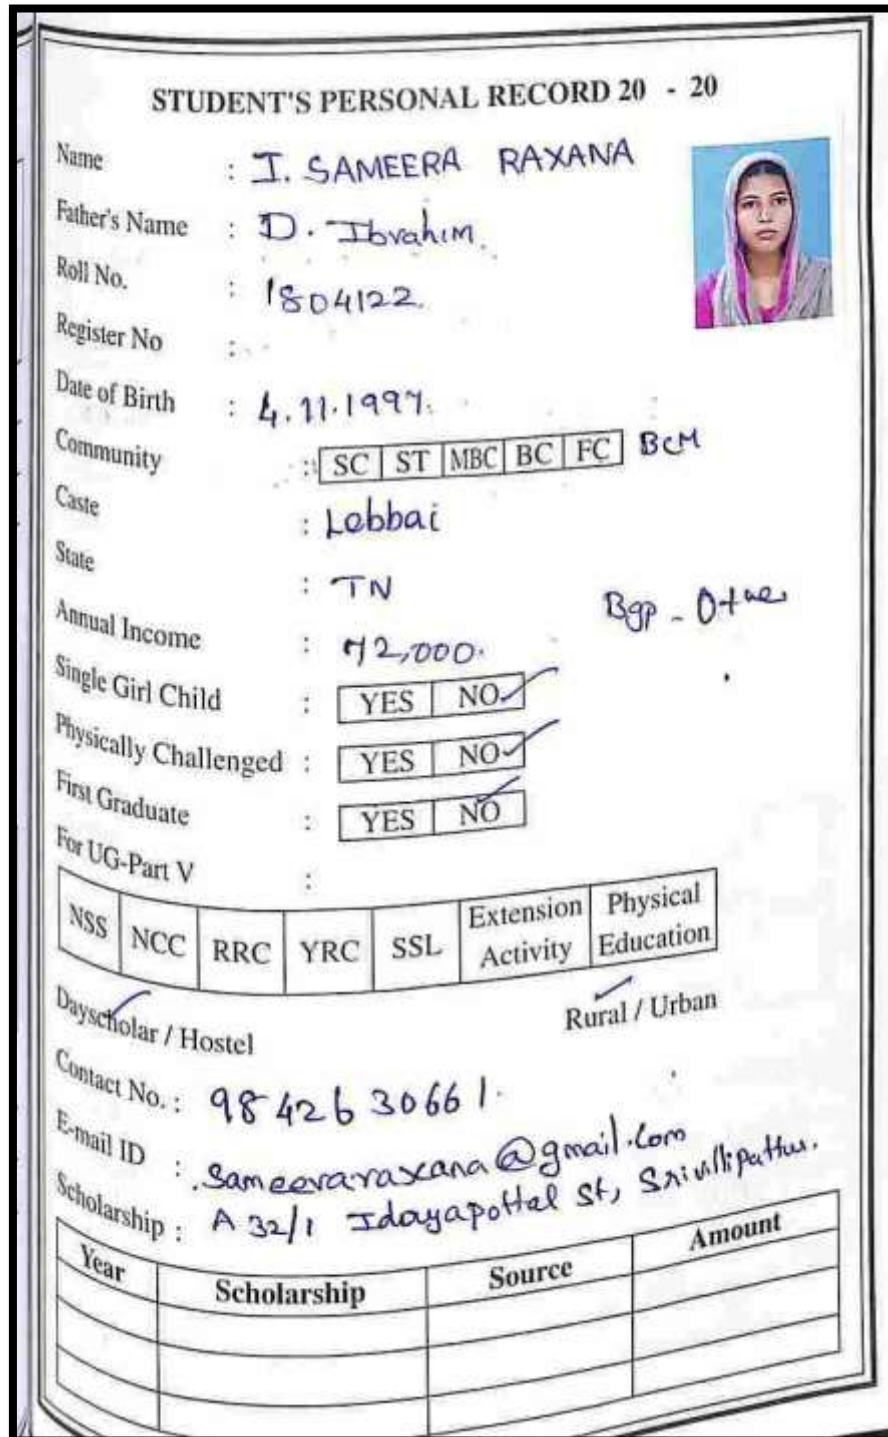 STUDENT'S PERSONAL RECORD 20 - 20
Name : I. SAMEERA RAXANA
Father's Name : D. Ibrahim
Roll No. : 1804122.
Register No :
Date of Birth : 4.11.1997.
Community : SC ST MBC BC FC BCM
Caste : Lebbai
State : TN
Annual Income : 72,000.
Single Girl Child : YES NO
Physically Challenged : YES NO
First Graduate : YES NO
For UG-Part V :
NSS NCC RRC YRC SSL Extension Activity Physical Education
Dayscholar / Hostel Rural / Urban
Contact No. : 98426 30661.
E-mail ID : sameeraraxana@gmail.com
Scholarship : A 32/1 Idayapottal St, Srivilliputtur.
Year Scholarship Source Amount